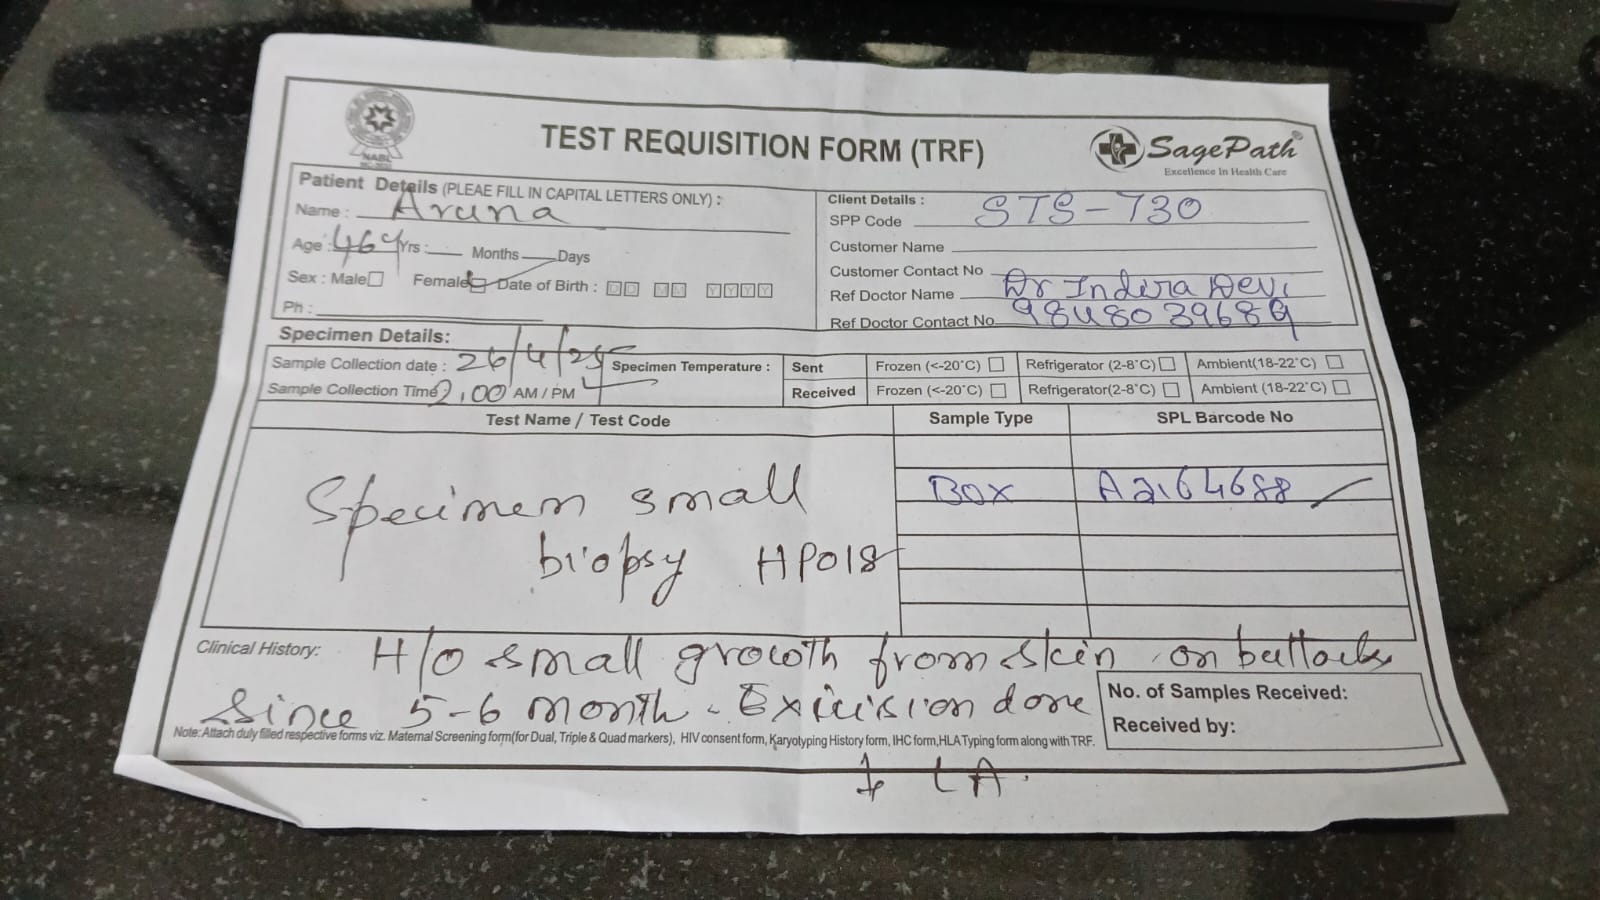 TEST REQUISITION FORM (TRF)
NABL
SagePath®
Excellence In Health Care
Patient Details (PLEAE FILL IN CAPITAL LETTERS ONLY) :
Name : Aruna
Age : 46y Yrs : Months Days
Sex : Male Female Date of Birth : DD MM YYYY
Ph :
Client Details :
SPP Code STS-730
Customer Name
Customer Contact No
Ref Doctor Name Dr Indira Devi
Ref Doctor Contact No. 9848039689
Specimen Details:
Sample Collection date : 26/4/25 Specimen Temperature : Sent Frozen (<-20°C) Refrigerator (2-8°C) Ambient(18-22°C)
Sample Collection Time 2.00 AM / PM Received Frozen (<-20°C) Refrigerator(2-8°C) Ambient (18-22°C)
Test Name / Test Code Sample Type SPL Barcode No
Specimen small
biopsy HP018
Box A2164688
Clinical History: H/o small growth from skin on buttocks
since 5-6 month - Exicision done
No. of Samples Received:
Received by:
Note: Attach duly filled respective forms viz. Maternal Screening form(for Dual, Triple & Quad markers), HIV consent form, Karyotyping History form, IHC form,HLA Typing form along with TRF.
LA.